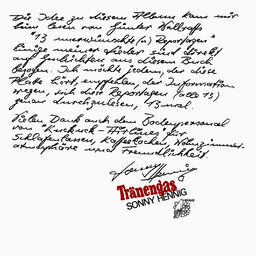 Die Idee zu diesem Album kam mir
beim Lesen von Günter Wallraffs
"13 unerwünschte(n) Reportagen"
Einige meiner Lieder sind direkt
auf Geschichten aus diesem Buch
bezogen. Ich möchte jedem, der diese
Platte hört, empfehlen, der Information
wegen, sich diese Reportagen (alle 13)
genau durchzulesen, 13 mal.
Vielen Dank auch dem Bodenpersonal
von "Kuckuck-Airlines" für
Schlafenlassen, Kaffeekochen, Wohnzimmer-
atmosphäre und Freundlichkeit
Sonny Hennig
Tränengas
SONNY HENNIG